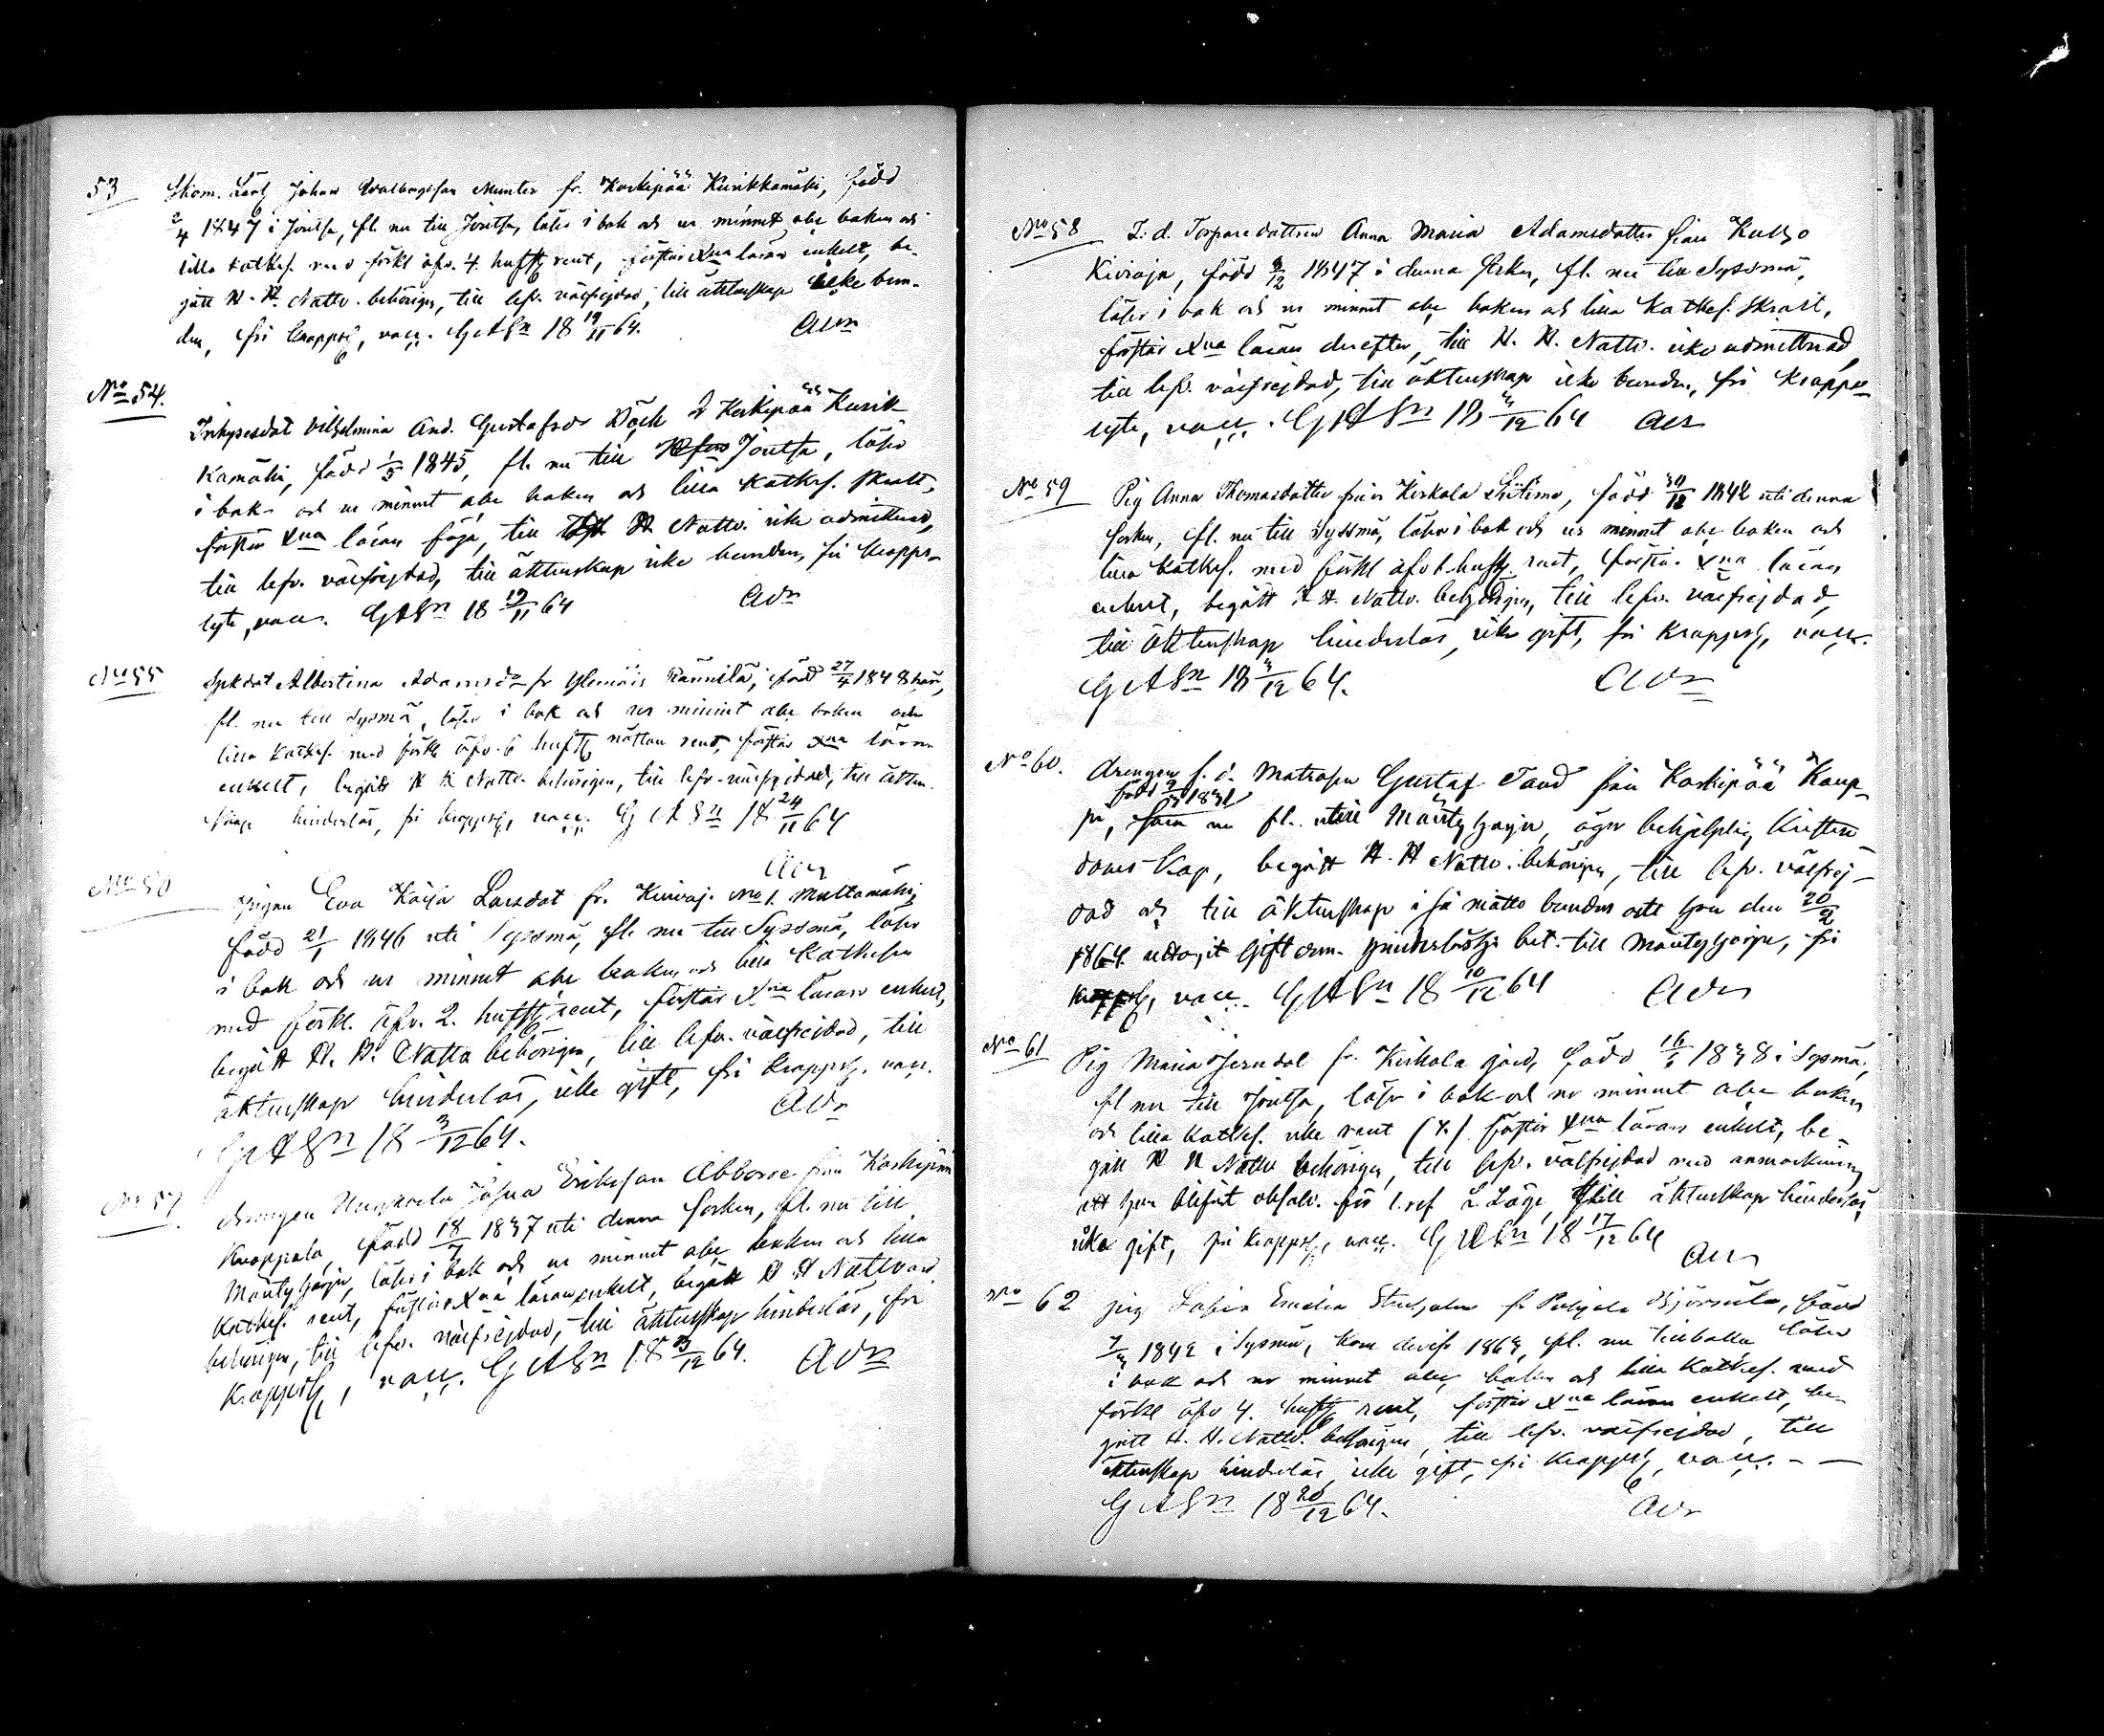 53 Skom. Lärl Johan Walborgsson Munter fr. Koskipää Kurikkamäki, född
2/4 1847 i Joutsa, fl. nu till Joutsa, läser i bok och ur minnet abc boken och
lilla katkes. med förkl öfv. 4. hufst rent, förstår Xna läran enkelt, be-
gått H. H. Nattv. behörigen, till lefv. välfrejdad, till äktenskap icke bun-
den, fri kopps, vacc. G A Sn 18 19/11 64. AWn
No 54.
Inhysesdot Vilhelmina And. Gustafsdr Koskipää Kurik-
kamäki, född 1/5 1845, fl. nu till Joutsa, läser
i bok och ur minnet abc boken och lilla katkes. skralt,
förstår Xna läran föga, till H Nattv. icke admitterad,
till lefv. välfrejdad, till äktenskap icke bunden, fri kopps-
lyta, vacc. G A Sn 18 19/11 64 AWn
No 55 Albertina Adamsdr fr Ylemäis Rannila, född 27/4 1848 här,
fl. nu till Sysmä, läser i bok och ur minnet abc boken och
lilla katkes. med förkl öfv. 6 hufst nästan rent, förstår Xna läran
enkelt, begått H H Nattv. behörigen, till lefv. välfrejdad, till äkten-
skap hinderslös, fri kopps, vacc. G A Sn 18 24/11 64
AWn
No 56 pigan Eva Kajsa Larsdot fr. Kuivaj. No 1. Multamäki,
född 21/1 1846 uti Syssmä, fl. nu till Syssmä, läser
i bok och ur minnet abc boken och lilla Katkesen
med förkl. öfv. 2. hufst rent, förstår Xna läran enkelt,
begått H. H. Nattv behörigen, till lefv. välfrejdad, till
äktenskap hinderslös, icke gift, fri kopps, vacc.
G A Sn 18 3/12 64. AWn
No 57 drängen Josua Eriksson Abborre från Koskipää
Knappala, född 18/7 1837 uti denna socken, fl. nu till
Mäntyharju, läser i bok och ur minnet abc boken och lilla
katkes. rent, förstår Xna läran enkelt, begått H H Nattvard
behörigen, till lefv. välfrejdad, till äktenskap hinderslös, fri
kopps, vacc. G A Sn 18 3/12 64. AWn
No 58 L. d. Torparedottren Anna Maria Adamsdotter från
Kivioja, född 9/12 1847 i denna socken, fl. nu till Syssmä,
läser i bok och ur minnet abc boken och lilla katkes. skralt,
förstår Xna läran derefter, till H. H. Nattv. icke admitterad,
till lefv. välfrejdad, till äktenskap icke bunden, fri kopps-
lyte, vacc. G A Sn 18 3/12 64 AWn
No 59 Pig Anna Thomasdotter från Kirkola Siltima, född 30/12 1842 uti denna
socken, fl. nu till Syssmä, läser i bok och ur minnet abc boken och
lilla katkes. med förkl öfv 1. hufst. rent, förstår Xna läran
enkelt, begått H H. Nattv. behörigen, till lefv. välfrejdad,
till äktenskap hinderslös, icke gift, fri kopps, vacc.
G A Sn 18 3/12 64. AWn
No 60. drengen f. d. Matrosen Gustaf Tand från Koskipää Kaup-
född 9/3 1831
pi, som nu fl. till Mäntyharju, äger behjelplig kristen-
domskap, begått H. H Nattv. behörigen, till lefv. välfrej-
dad och till äktenskap i så måtto bunden att han den 20/2
1864 uttagit Giftorm. hinderslöshets bet. till Mäntyharju, fri
kopps, vacc. G A Sn 18 10/12 64 AWn
No 61 Pig Maria Jerndal fr. Kirkola gård, född 16/5 1838 i Sysmä,
fl nu till Joutsa, läser i bok och ur minnet abc boken
och lilla katkes. icke rent (x.) förstår Xna läran enkelt, be-
gått H H Nattv behörigen, till lefv. välfrejdad med anmärkning
att hon blifvit absolv. för 1. resf L Läge, till äktenskap hinderslös,
icke gift, fri kopps, vacc. G A Sn 18 17/12 64
AWn
No 62 pig Sofia Emelia fr Pohjola Björnila, född
7/3 1842 i Sysmä, kom derifr 1863, fl. nu tillbaka läser
i bok och ur minnet abc boken och lilla katkes. med
förkl öfv 4. hufst rent, förstår Xna läran enkelt, be-
gått H. H. Nattv. behörigen, till lefv. välfrejdad, till
äktenskap hinderslös, icke gift, fri kopps, vacc. - -
G A Sn 18 20/12 64. AWn